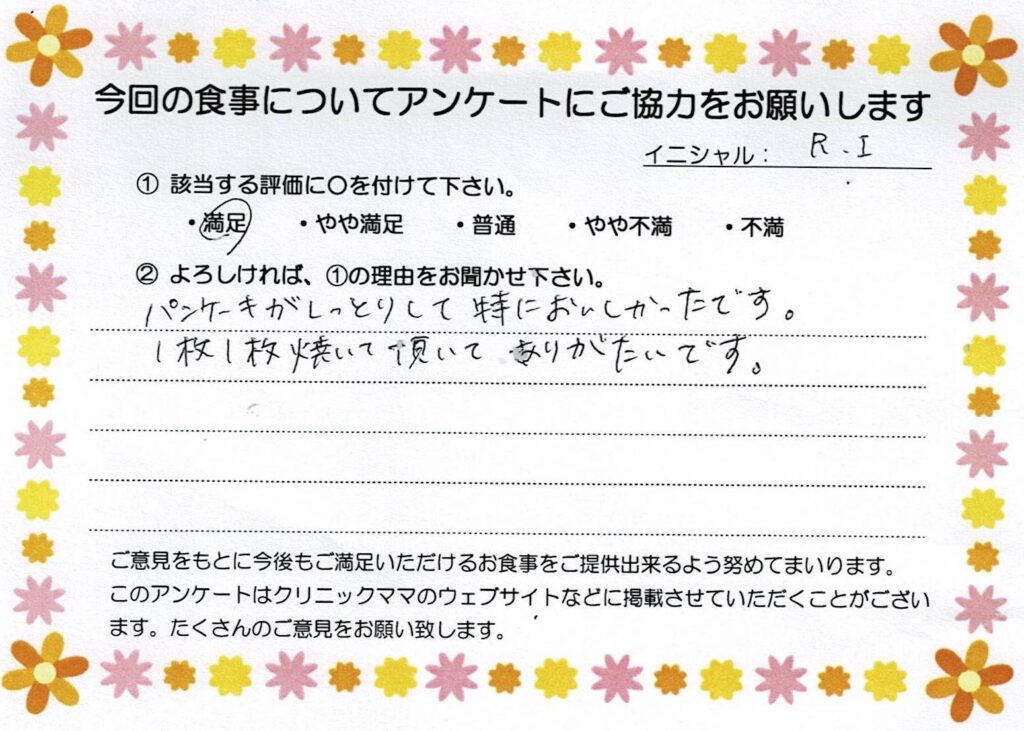 今回の食事についてアンケートにご協力をお願いします
イニシャル： R.I
① 該当する評価に○を付けて下さい。
・満足 ・やや満足 ・普通 ・やや不満 ・不満
② よろしければ、①の理由をお聞かせ下さい。
パンケーキがしっとりして特においしかったです。
1枚1枚焼いて頂いてありがたいです。
ご意見をもとに今後もご満足いただけるお食事をご提供出来るよう努めてまいります。
このアンケートはクリニックママのウェブサイトなどに掲載させていただくことがござい
ます。たくさんのご意見をお願い致します。